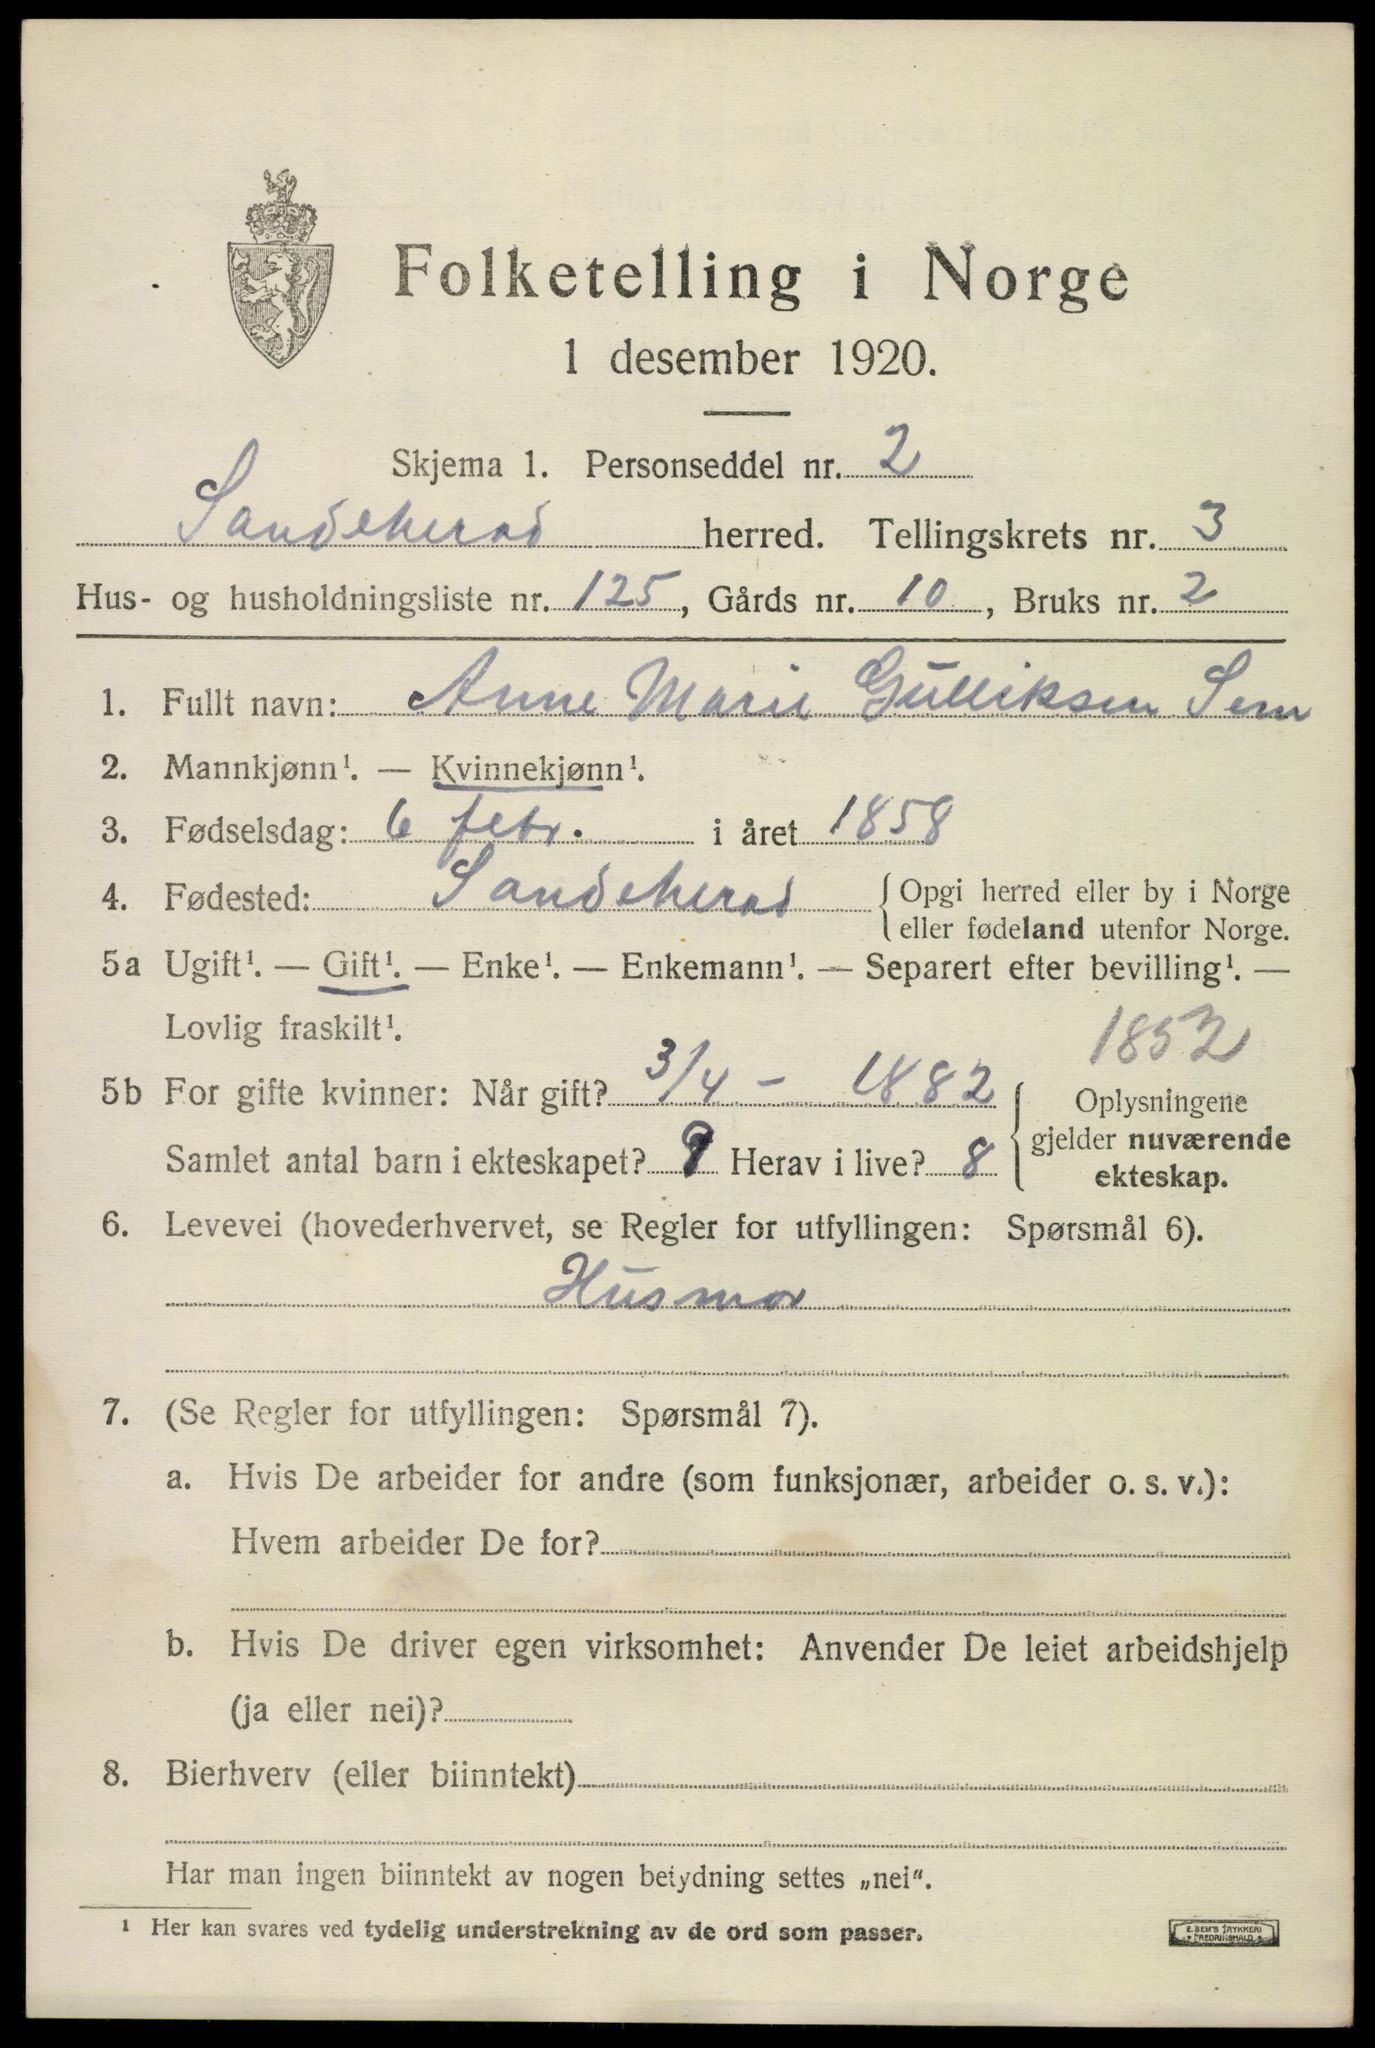 Folketelling i Norge
1 desember 1920.
Skjema 1. Personseddel nr. 2
Sandeherad herred. Tellingskrets nr. 3
Hus- og husholdningsliste nr. 125, Gårds nr. 10, Bruks nr. 2
1. Fullt navn: Anne Marie Gulliksen Sem
2. Mannkjønn¹. — Kvinnekjønn¹.
3. Fødselsdag: 6 febr. i året 1858
4. Fødested: Sandeherad { Opgi herred eller by i Norge
eller fødeland utenfor Norge.
5a Ugift¹. — Gift¹. — Enke¹. — Enkemann¹. — Separert efter bevilling¹. —
Lovlig fraskilt¹.
1852
5b For gifte kvinner: Når gift? 3/4 - 1882
Samlet antal barn i ekteskapet? 9 Herav i live? 8
{ Oplysningene
gjelder nuværende
ekteskap.
6. Levevei (hovederhvervet, se Regler for utfyllingen: Spørsmål 6).
Husmor
7. (Se Regler for utfyllingen: Spørsmål 7).
a. Hvis De arbeider for andre (som funksjonær, arbeider o. s. v.):
Hvem arbeider De for?
b. Hvis De driver egen virksomhet: Anvender De leiet arbeidshjelp
(ja eller nei)?
8. Bierhverv (eller biinntekt)
Har man ingen biinntekt av nogen betydning settes „nei“.
¹ Her kan svares ved tydelig understrekning av de ord som passer.
E. SEM'S TRYKKERI
FREDRIKSHALD